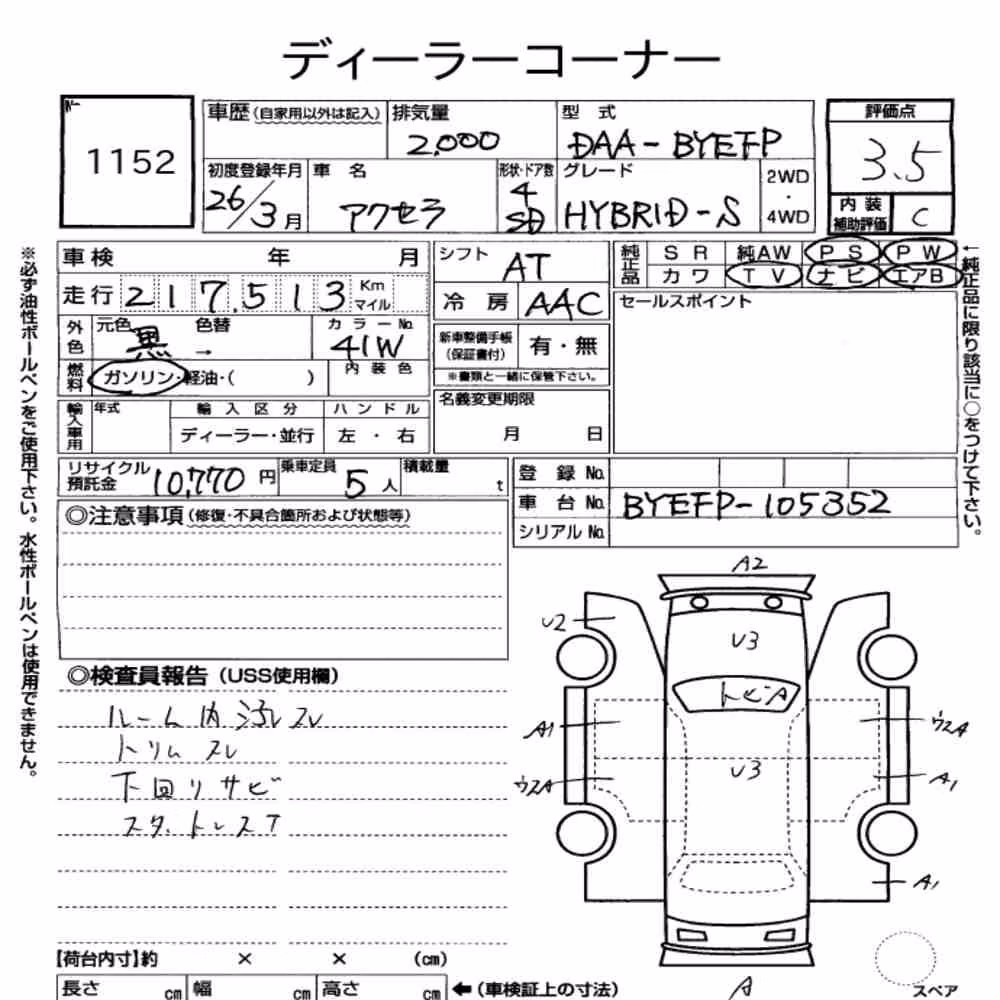 ディーラーコーナー
1152
車歴(自家用以外は記入)
排気量
2,000
型 式
DAA-BYEFP
評価点
3.5
内装補助評価
C
初度登録年月
26/3月
車 名
アクセラ
形状・ドア数
4
SD
グレード
HYBRID-S
2WD
・
4WD
車検 年 月
シフト
AT
純正品
SR 純AW PS PW
カワ TV ナビ エアB
走行 217,513 Km
マイル
冷房 AAC
セールスポイント
外色
元色 色替
黒 →
カラーNo.
41W
新車整備手帳
(保証書付)
有・無
※書類と一緒に保管下さい。
燃料
ガソリン・軽油・( )
内装色
輸入車用
年式
輸入区分
ディーラー・並行
ハンドル
左・右
名義変更期限
月 日
リサイクル
預託金
10,770円
乗車定員
5人
積載量
t
登録No.
車台No. BYEFP-105352
シリアルNo.
◎注意事項(修復・不具合箇所および状態等)
◎検査員報告(USS使用欄)
ルーム内 汚レ スレ
トリム スレ
下回リ サビ
スタ、トレスT
A2
U2
U3
トビA
A1
ウスA
U3
ウスA
A1
A1
A
スペア
【荷台内寸】約 × × (cm)
長さ cm 幅 cm 高さ cm ←(車検証上の寸法)
※必ず油性ボールペンをご使用下さい。水性ボールペンは使用できません。
←純正品に限り該当に○をつけて下さい。